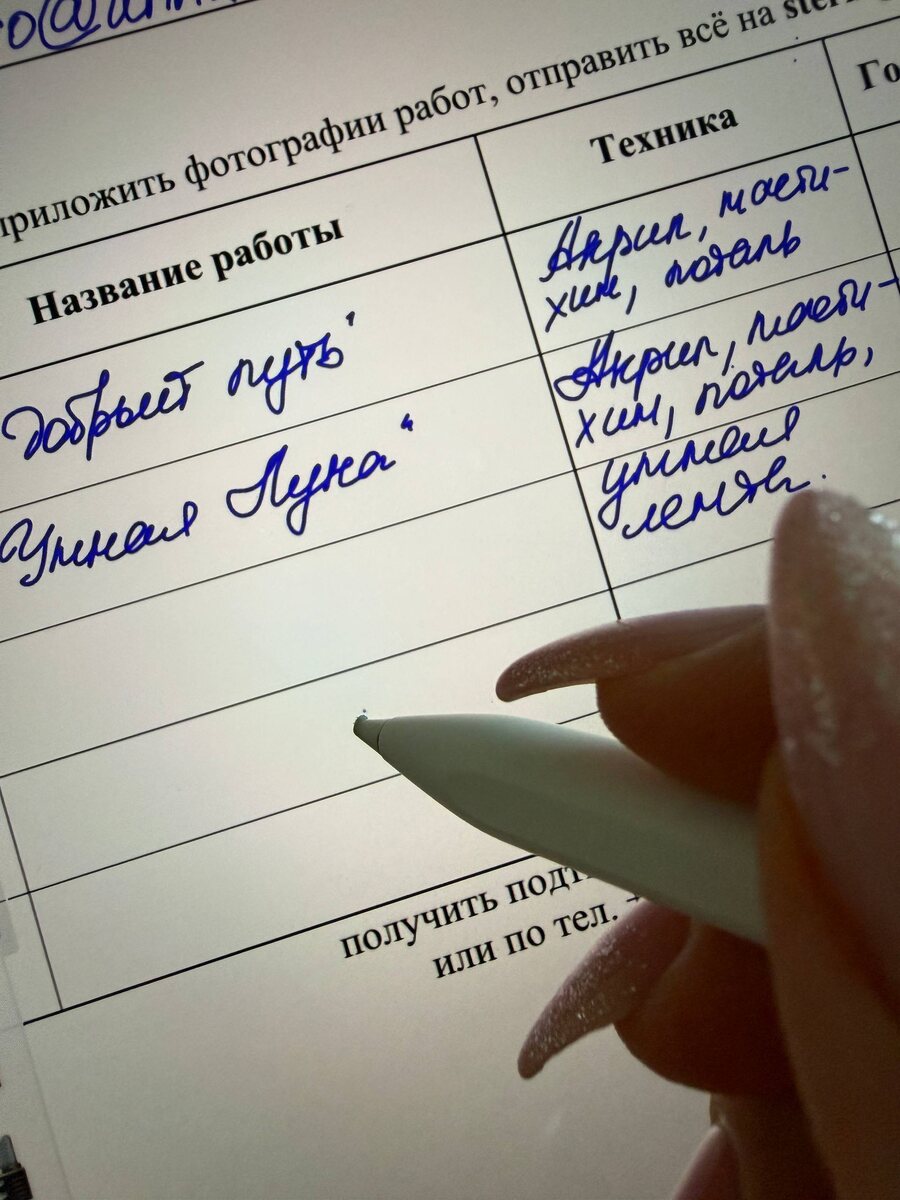 приложить фотографии работ, отправить всё на
Название работы
Техника
Го
Добрый путь"
Акрил, масти-
хин, поталь
Умная Луна"
Акрил, масти-
хин, поталь,
умная
лента.
получить подт
или по тел. +